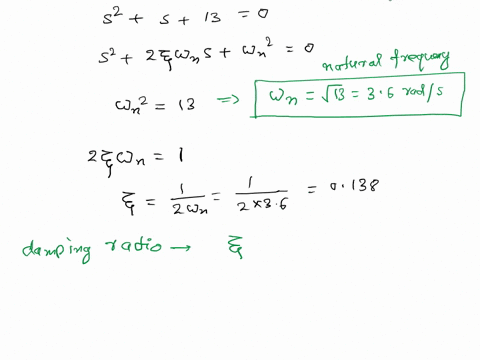 s² + s + 13 = 0
s² + 2ξωₙs + ωₙ² = 0
natural frequency
ωₙ² = 13 => ωₙ = √13 = 3.6 rad/s
2ξωₙ = 1
ξ = 1/2ωₙ = 1/2×3.6 = 0.138
damping ratio → ξ